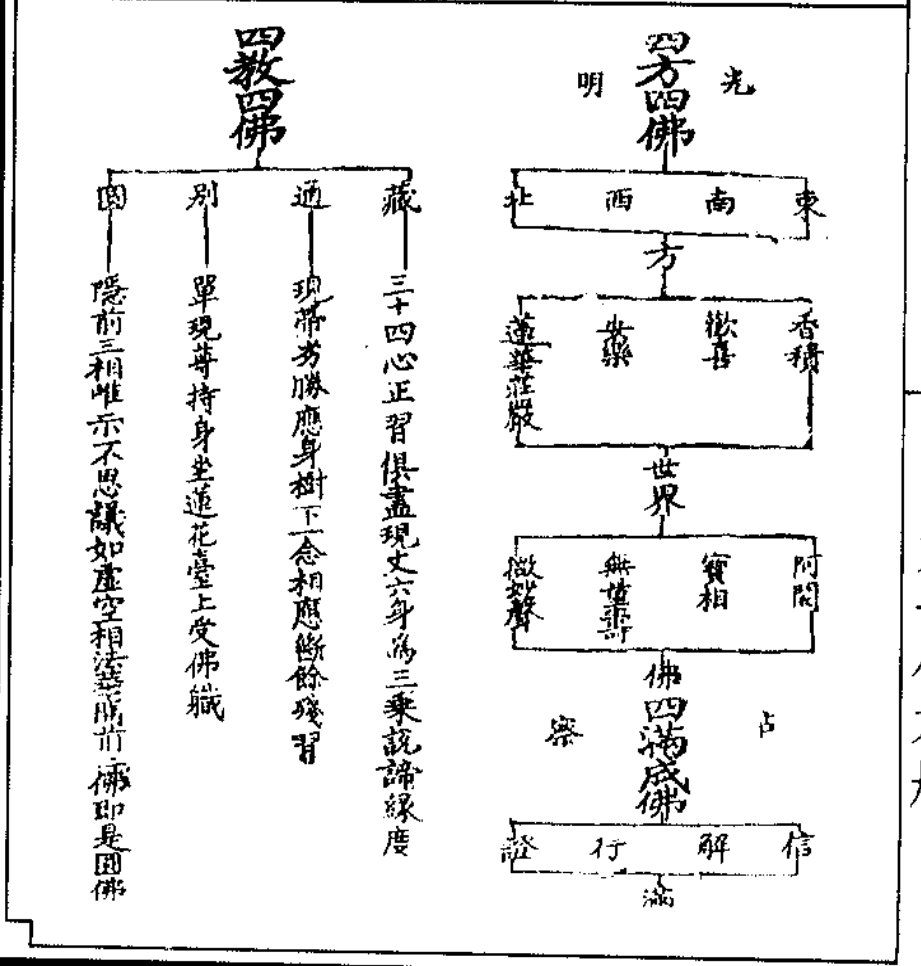 光明
四方四佛
東
南
西
北
方
香積
歡喜
安樂
蓮華莊嚴
世界
阿閦
寶相
無量壽
微妙聲
佛
占察
四滿成佛
信
解
行
證
滿
四教四佛
藏
三十四心正習俱盡現丈六身為三乘說諦緣度
通
現帶劣勝應身樹下一念相應斷餘殘習
別
單現尊特身坐蓮花臺上受佛職
圓
隱前三相唯示不思議如虛空相法華前佛即是圓佛